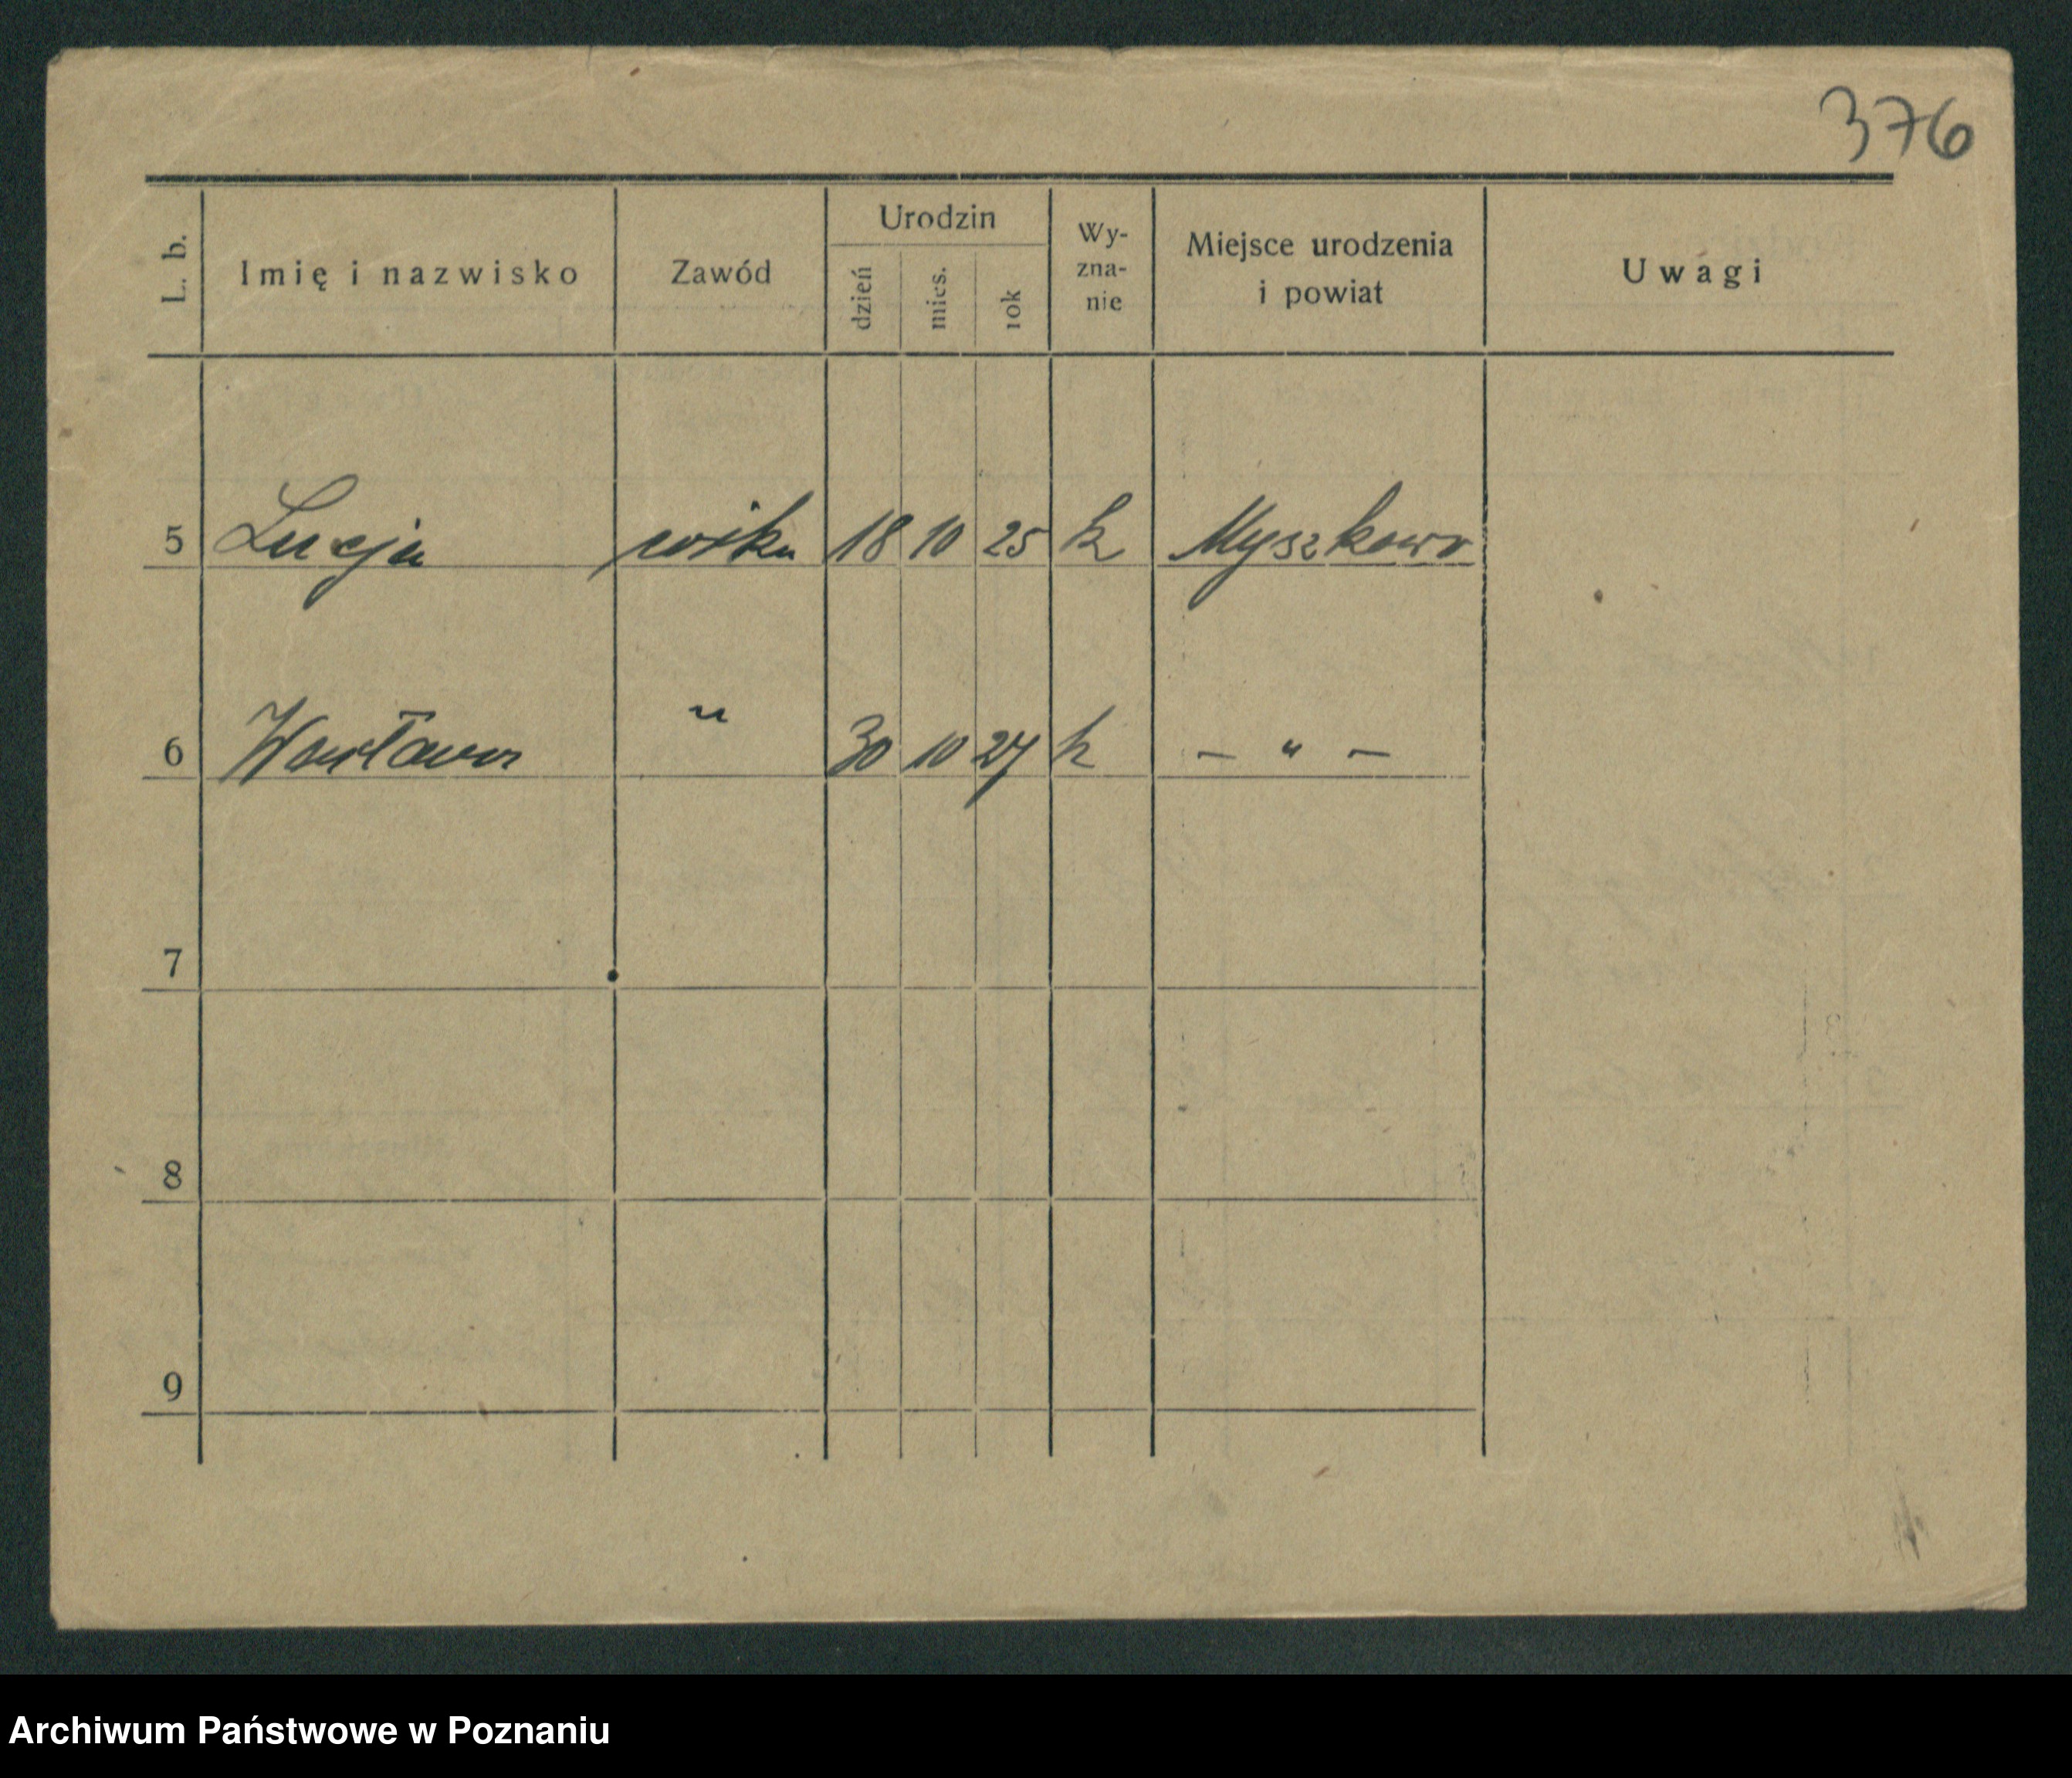 376
L. b.
Imię i nazwisko
Zawód
Urodzin
dzień
mies.
rok
Wy-
zna-
nie
Miejsce urodzenia
i powiat
Uwagi
5 Lucja 18 10 25 k Myszkowo
6 Wacława " 30 10 27 k — " —
7
8
9
Archiwum Państwowe w Poznaniu